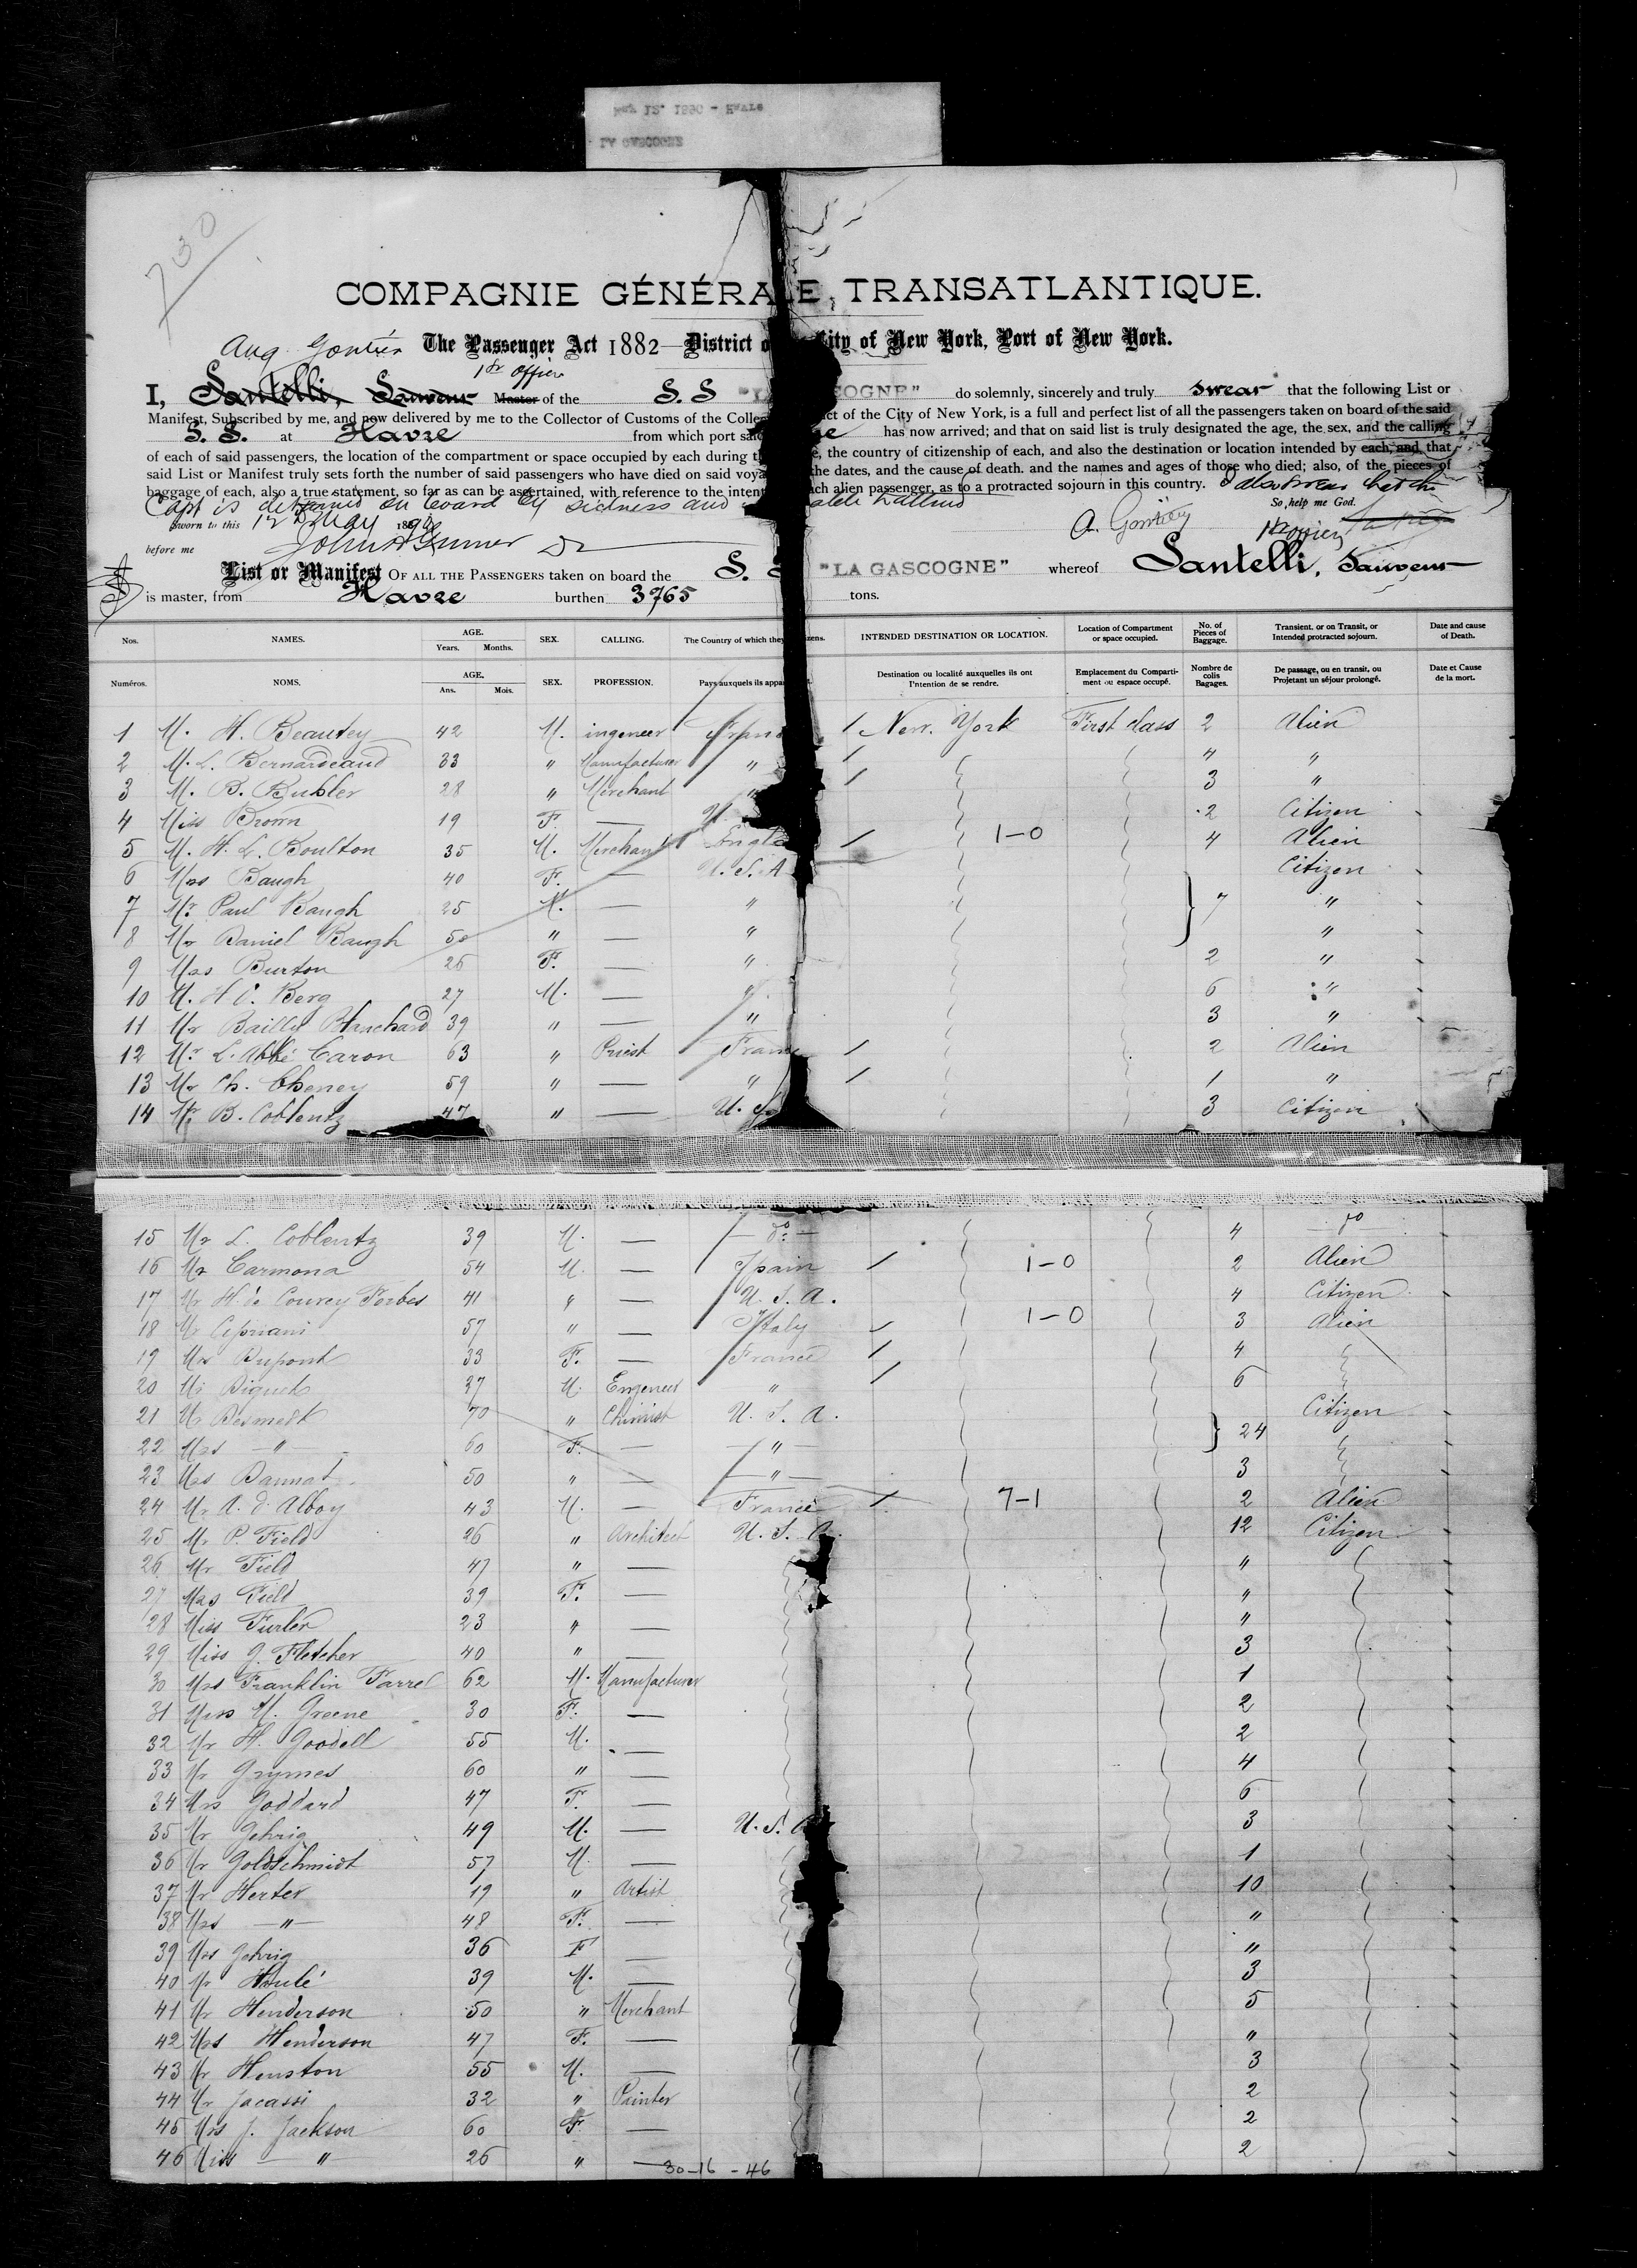 LA GASCOGNE
730
COMPAGNIE GÉNÉRALE TRANSATLANTIQUE.
Aug. Gontier The Passenger Act 1882—District o City of New York, Port of New York.
1st officer
I, Santelli, Sauveur Master of the S. S "LA GASCOGNE" do solemnly, sincerely and truly swear that the following List or
Manifest, Subscribed by me, and now delivered by me to the Collector of Customs of the Collec ct of the City of New York, is a full and perfect list of all the passengers taken on board of the said
S. S. at Havre from which port said has now arrived; and that on said list is truly designated the age, the sex, and the calling
of each of said passengers, the location of the compartment or space occupied by each during th e, the country of citizenship of each, and also the destination or location intended by each, and that
said List or Manifest truly sets forth the number of said passengers who have died on said voya the dates, and the cause of death. and the names and ages of those who died; also, of the pieces of
baggage of each, also a true statement, so far as can be ascertained, with reference to the intent ach alien passenger, as to a protracted sojourn in this country. I also swear that the
Capt is detained on board by sickness and So help me God.
Sworn to this 12th May 189 A. Gontier 1st officer
before me
List or Manifest OF ALL THE PASSENGERS taken on board the S. S "LA GASCOGNE" whereof Santelli, Sauveur
is master, from Havre burthen 3765 tons.
Nos. NAMES. AGE. Years. Months. SEX. CALLING. The Country of which they zens. INTENDED DESTINATION OR LOCATION. Location of Compartment or space occupied. No. of Pieces of Baggage. Transient, or on Transit, or Intended protracted sojourn. Date and cause of Death.
Numéros. NOMS. AGE. Ans. Mois. SEX. PROFESSION. Pays auxquels ils appar Destination ou localité auxquelles ils ont l'intention de se rendre. Emplacement du Compartiment ou espace occupé. Nombre de colis Bagages. De passage, ou en transit, ou Projetant un séjour prolongé. Date et Cause de la mort.
1 M. H. Beautey 42 M. ingeneer Franc New. York First class 2 Alien
2 M. L. Bernardeaud 33 " Manufacturer " 4 "
3 M. B. Bubler 28 " Merchant " 3 "
4 Miss Brown 19 F. — U. 2 Citizen
5 M. H. L. Boulton 35 M. Merchant Engla 1-0 4 Alien
6 Mrs Baugh 40 F. — U.S.A Citizen
7 Mr Paul Baugh 25 M. — " } 7 "
8 Mr Daniel Baugh 50 " — " "
9 Mrs Burton 26 F. — " 2 "
10 M. H C. Berg 27 M. — " 6 "
11 Mr Bailly Blanchard 39 " — " 3 "
12 Mr L. Abbé Caron 63 " Priest Franc 2 Alien
13 Mr Ch. Cheney 59 " — " 1 "
14 Mr B. Coblentz 47 " — U. S 3 Citizen
15 Mr L. Coblentz 39 M. — do 4 do
16 Mr Carmona 54 M. — Spain 1-0 2 Alien
17 Mr H. de Courcy Forbes 41 " — U.S.A. 4 Citizen
18 Mr Cipriani 57 " — Italy 1-0 3 Alien
19 Mrs Dupont 33 F. — France 4
20 Mr Diguet 37 M. Engeneer " 6
21 Mr Desmest 70 " Chimist U. S. A. Citizen
22 Mrs — " — 60 F. — — " — } 24
23 Mrs Dannat 50 " — — " — 3
24 Mr A. d. Alboy 43 M. — France 7-1 2 Alien
25 Mr P. Field 26 " Architect U. S. A. 12 Citizen
26 Mr Field 47 " — "
27 Mrs Field 39 F. — "
28 Miss Furler 23 " — "
29 Miss J. Fletcher 40 " — 3
30 Mrs Franklin Farrel 62 M. Manufacturer 1
31 Miss M. Greene 30 F. — 2
32 Mr H. Goodell 55 M. — 2
33 Mr Grymes 60 " — 4
34 Mrs Goddard 47 F. — 6
35 Mr Gehrig 49 M. — U. S. A 3
36 Mr Goldschmidt 57 M. — 1
37 Mr Herter 19 " Artist 10
38 Mrs — " — 48 F. — "
39 Mrs Gehrig 36 F — "
40 Mr Houlé 39 M. — 3
41 Mr Henderson 50 " Merchant 5
42 Mrs Henderson 47 F. — "
43 Mr Henston 55 M. — 3
44 Mr Jacassi 32 " Painter 2
45 Mrs J. Jackson 60 F. — 2
46 Miss — " — 26 " — 2
30-16-46